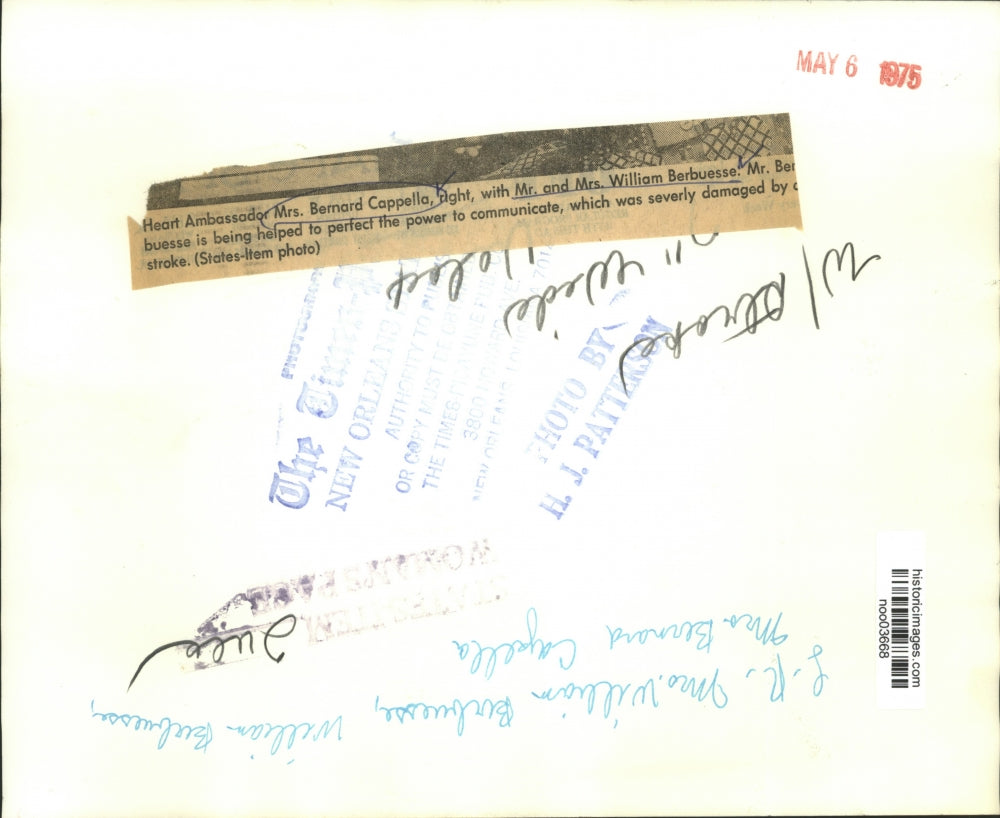 MAY 6 1975
Heart Ambassador Mrs. Bernard Cappella, right, with Mr. and Mrs. William Berbuesse. Mr. Ber
buesse is being helped to perfect the power to communicate, which was severly damaged by a
stroke. (States-Item photo)
w/ stroke
" wide
PHOTO BY
H. J. PATTERSON
The Times
NEW ORLEANS
AUTHORITY TO
OR COPY MUST BE
THE TIMES-PICAYUNE
3800 HOWARD AVE
NEW ORLEANS
STATES-ITEM
Tues
L.R. Mrs. William Berbuesse, William Berbuesse,
Mrs Bernard Capella
historicimages.com
noo03668